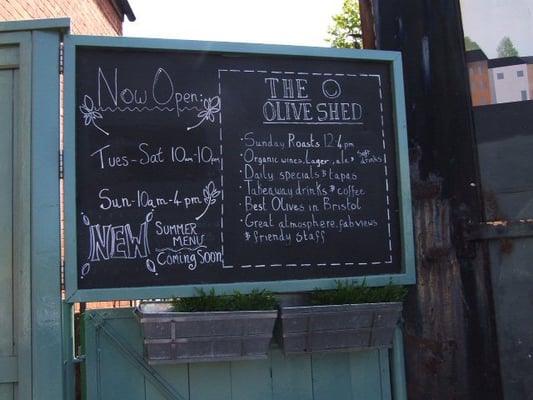 Now Open:
Tues-Sat 10am-10pm
Sun-10am-4pm
NEW SUMMER
MENU
Coming Soon
THE
OLIVE SHED
·Sunday Roasts 12-4pm
·Organic wines, Lager, ale & soft drinks
·Daily specials & tapas
·Takeaway drinks & coffee
·Best Olives in Bristol
·Great atmosphere, fab views
& friendly staff